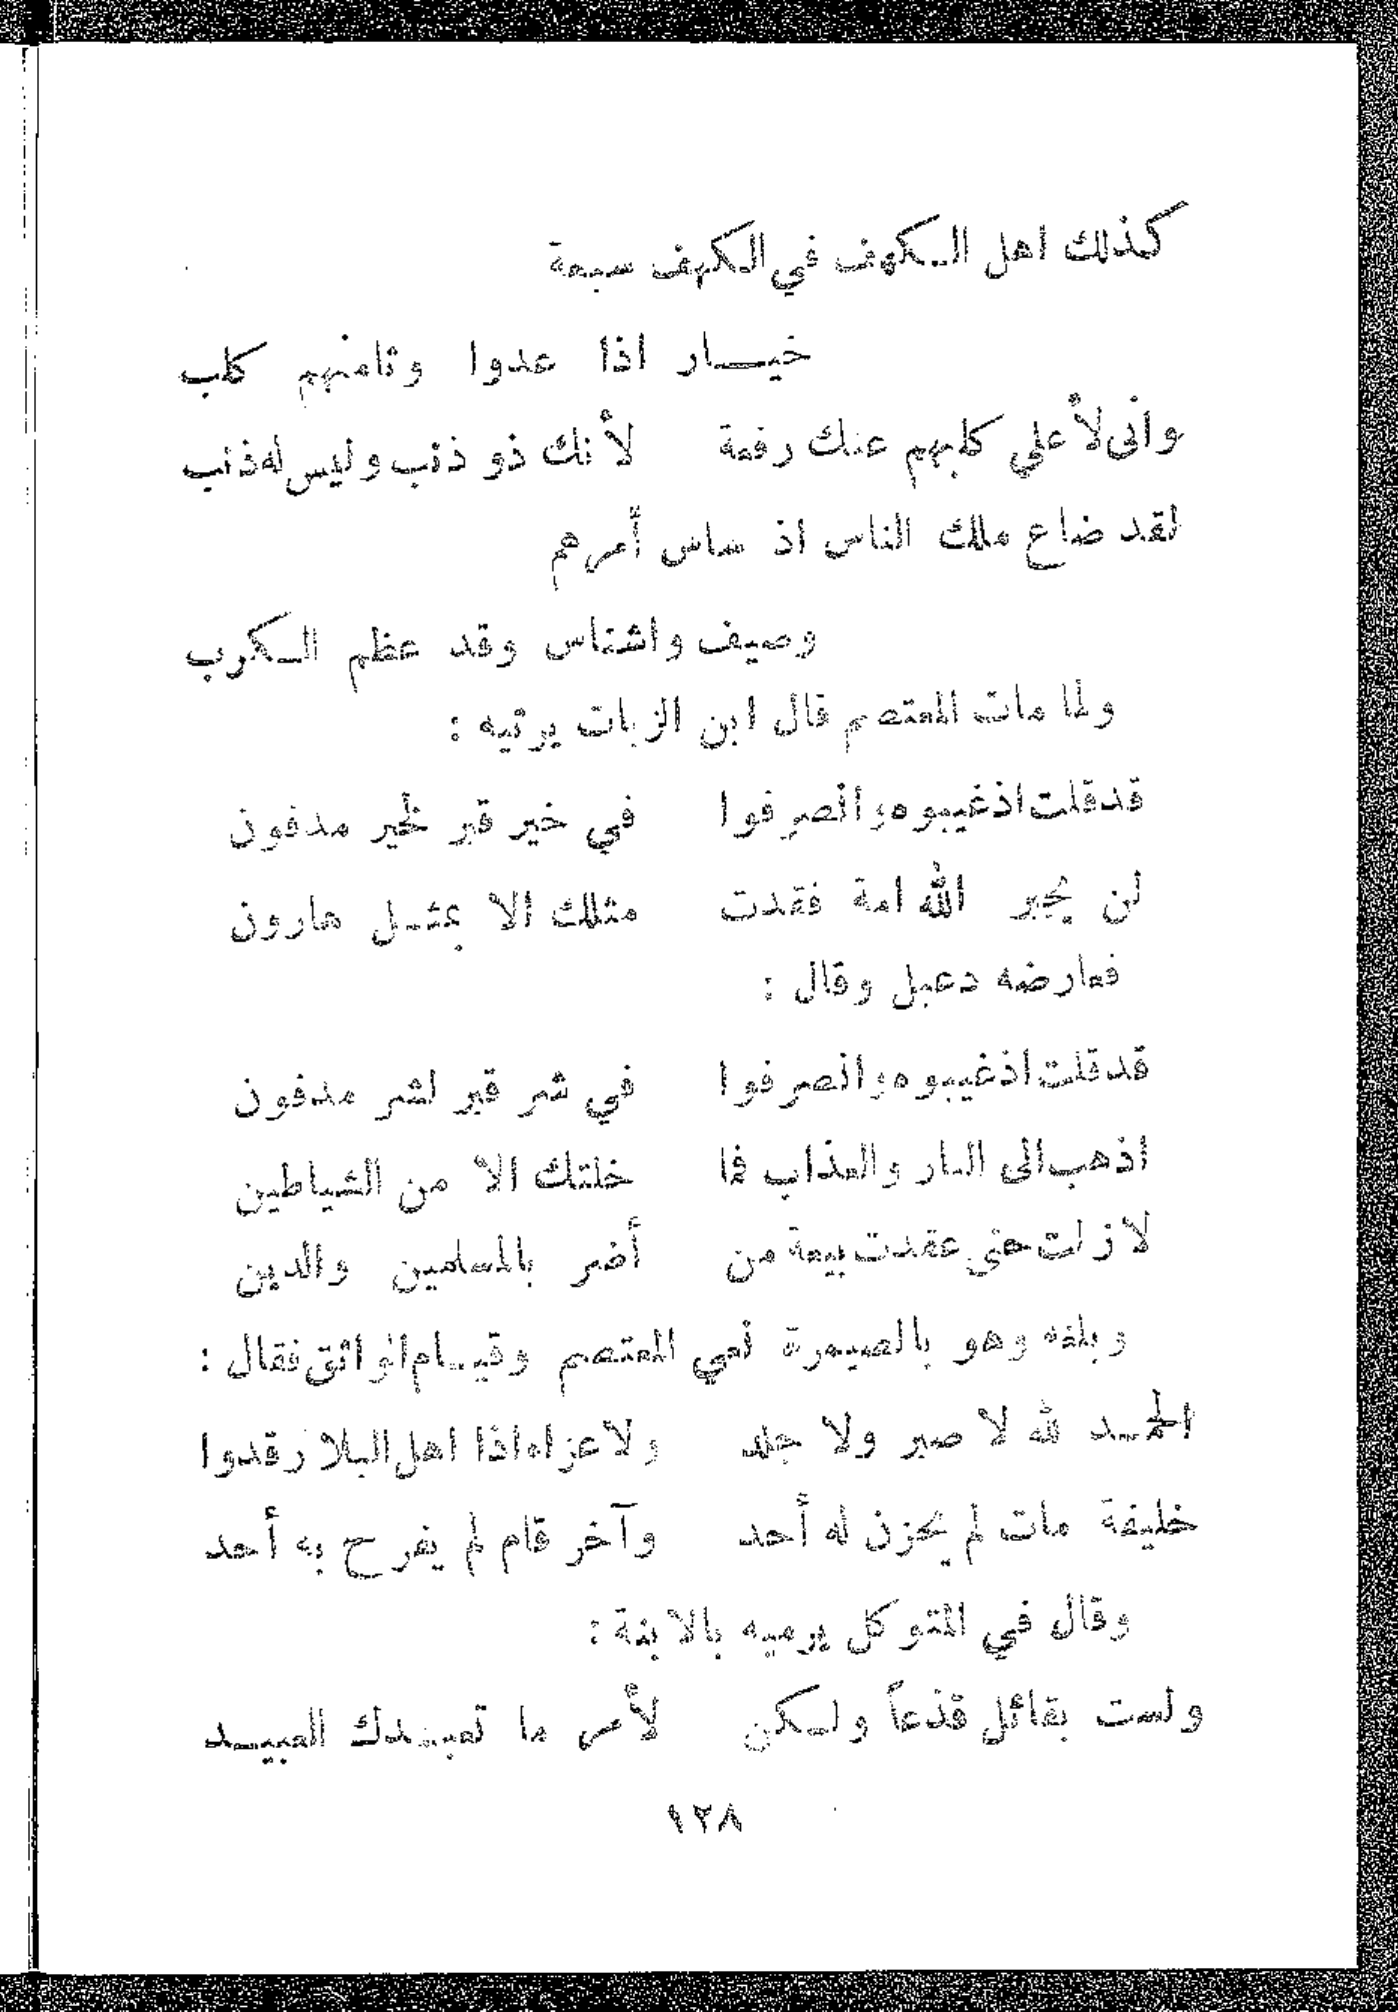 كذلك اهل الكهف في الكهف سبعة
خيار اذا عدوا وثامنهم كلب
وانى لأعلي كلبهم عنك رفعة لأنك ذو ذنب وليس له ذنب
لقد ضاع ملك الناس اذ ساس أمرهم
وصيف واشناس وقد عظم الكرب
ولما مات المعتصم قال ابن الزيات يرثيه :
قد قلت اذ غيبوه وانصرفوا في خير قبر لخير مدفون
لن يجبر الله امة فقدت مثلك الا بمثل هارون
فعارضه دعبل وقال :
قد قلت اذ غيبوه وانصرفوا في شر قبر لشر مدفون
اذهب الى النار والعذاب فما خلتك الا من الشياطين
لا زلت حتى عقدت بيعة من أضر بالمسلمين والدين
وبلغه وهو بالصيمرة نعي المعتصم وقيام الواثق فقال :
الحمد لله لا صبر ولا جلد ولا عزاء اذا اهل البلا رقدوا
خليفة مات لم يحزن له أحد وآخر قام لم يفرح به أحد
وقال في المتوكل يرميه بالابنة :
ولست بقائل قذعاً ولكن لأمر ما تعبدك العبيد
١٢٨